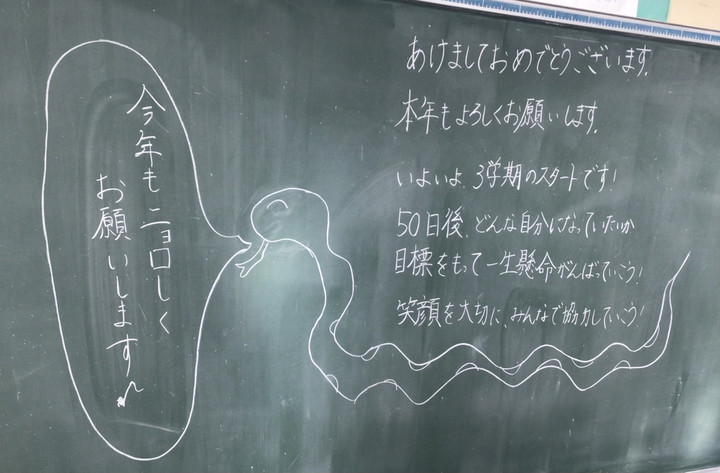 あけましておめでとうございます。
本年もよろしくお願いします。
いよいよ、3学期のスタートです!
50日後、どんな自分になっていたいか
目標をもって一生懸命がんばっていこう!
笑顔を大切に、みんなで協力していこう!
今年もニョロしく
お願いします